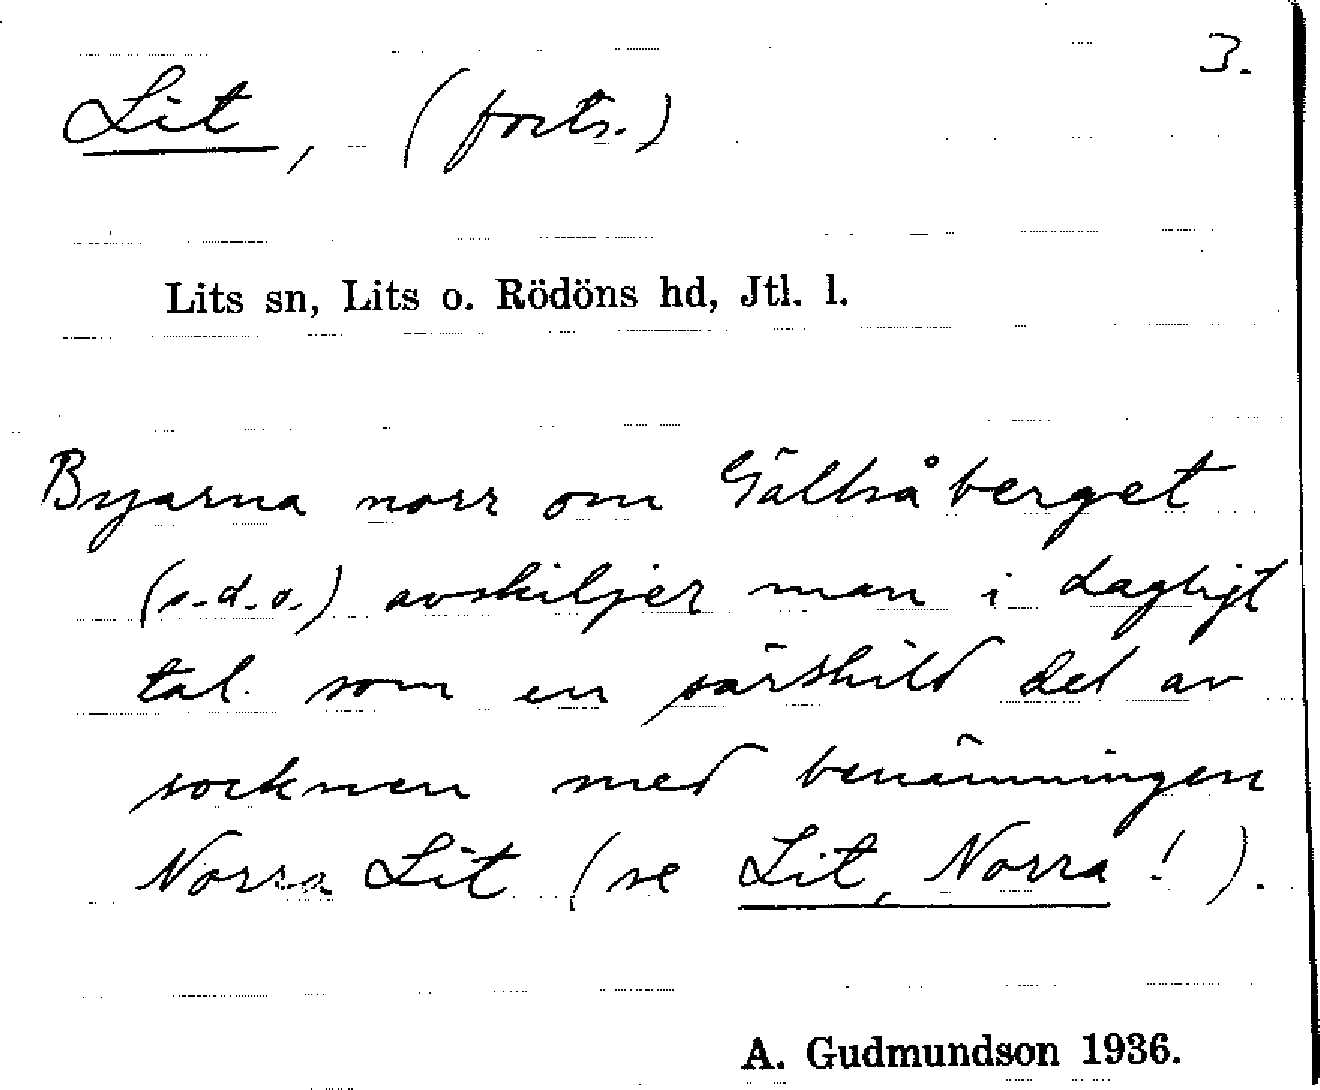 3.
Lit, (forts.)
Lits sn, Lits o. Rödöns hd, Jtl. l.
Byarna norr om
(s.d.o.) avskiljer man i dagligt
tal som en särskild del av
socknen med benämningen
Norra Lit (se Lit, Norra!).
A. Gudmundson 1936.